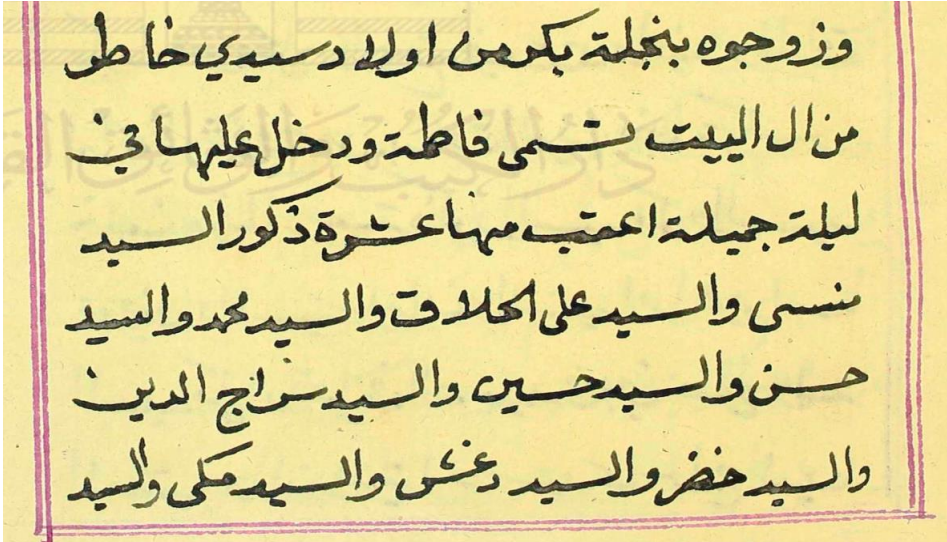 وزوجوه بنجلة بكر من اولاد سيدي خاطر
من ال البيت تسمى فاطمة ودخل عليها في
ليلة جميلة اعقب منها عشرة ذكور السيد
منسى والسيد على الحلاق والسيد محمد والسيد
حسن والسيد حسين والسيد سراج الدين
والسيد خضر والسيد دغش والسيد مكى والسيد